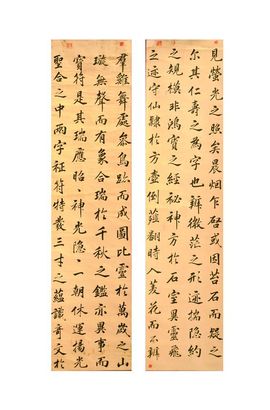 見螢光之照矣晨烟乍啓或苔石而疑之
尓其仁壽之為字也辨微茫之形迹揣隱約
之規模非鴻寶之經秘神方於石室異靈飛
之迹守仙隸於方壺倒薤翻時入芰花而不辨
羣雞舞處參鳥跡而成圖比靈於萬歲之山
璇無聲而有象合瑞於千秋之鑑亦異事而
寶符是其瑞應昭〻神光隱〻一朝休運揚光
聖合之中兩字征符特發三生之蘊識奇文於